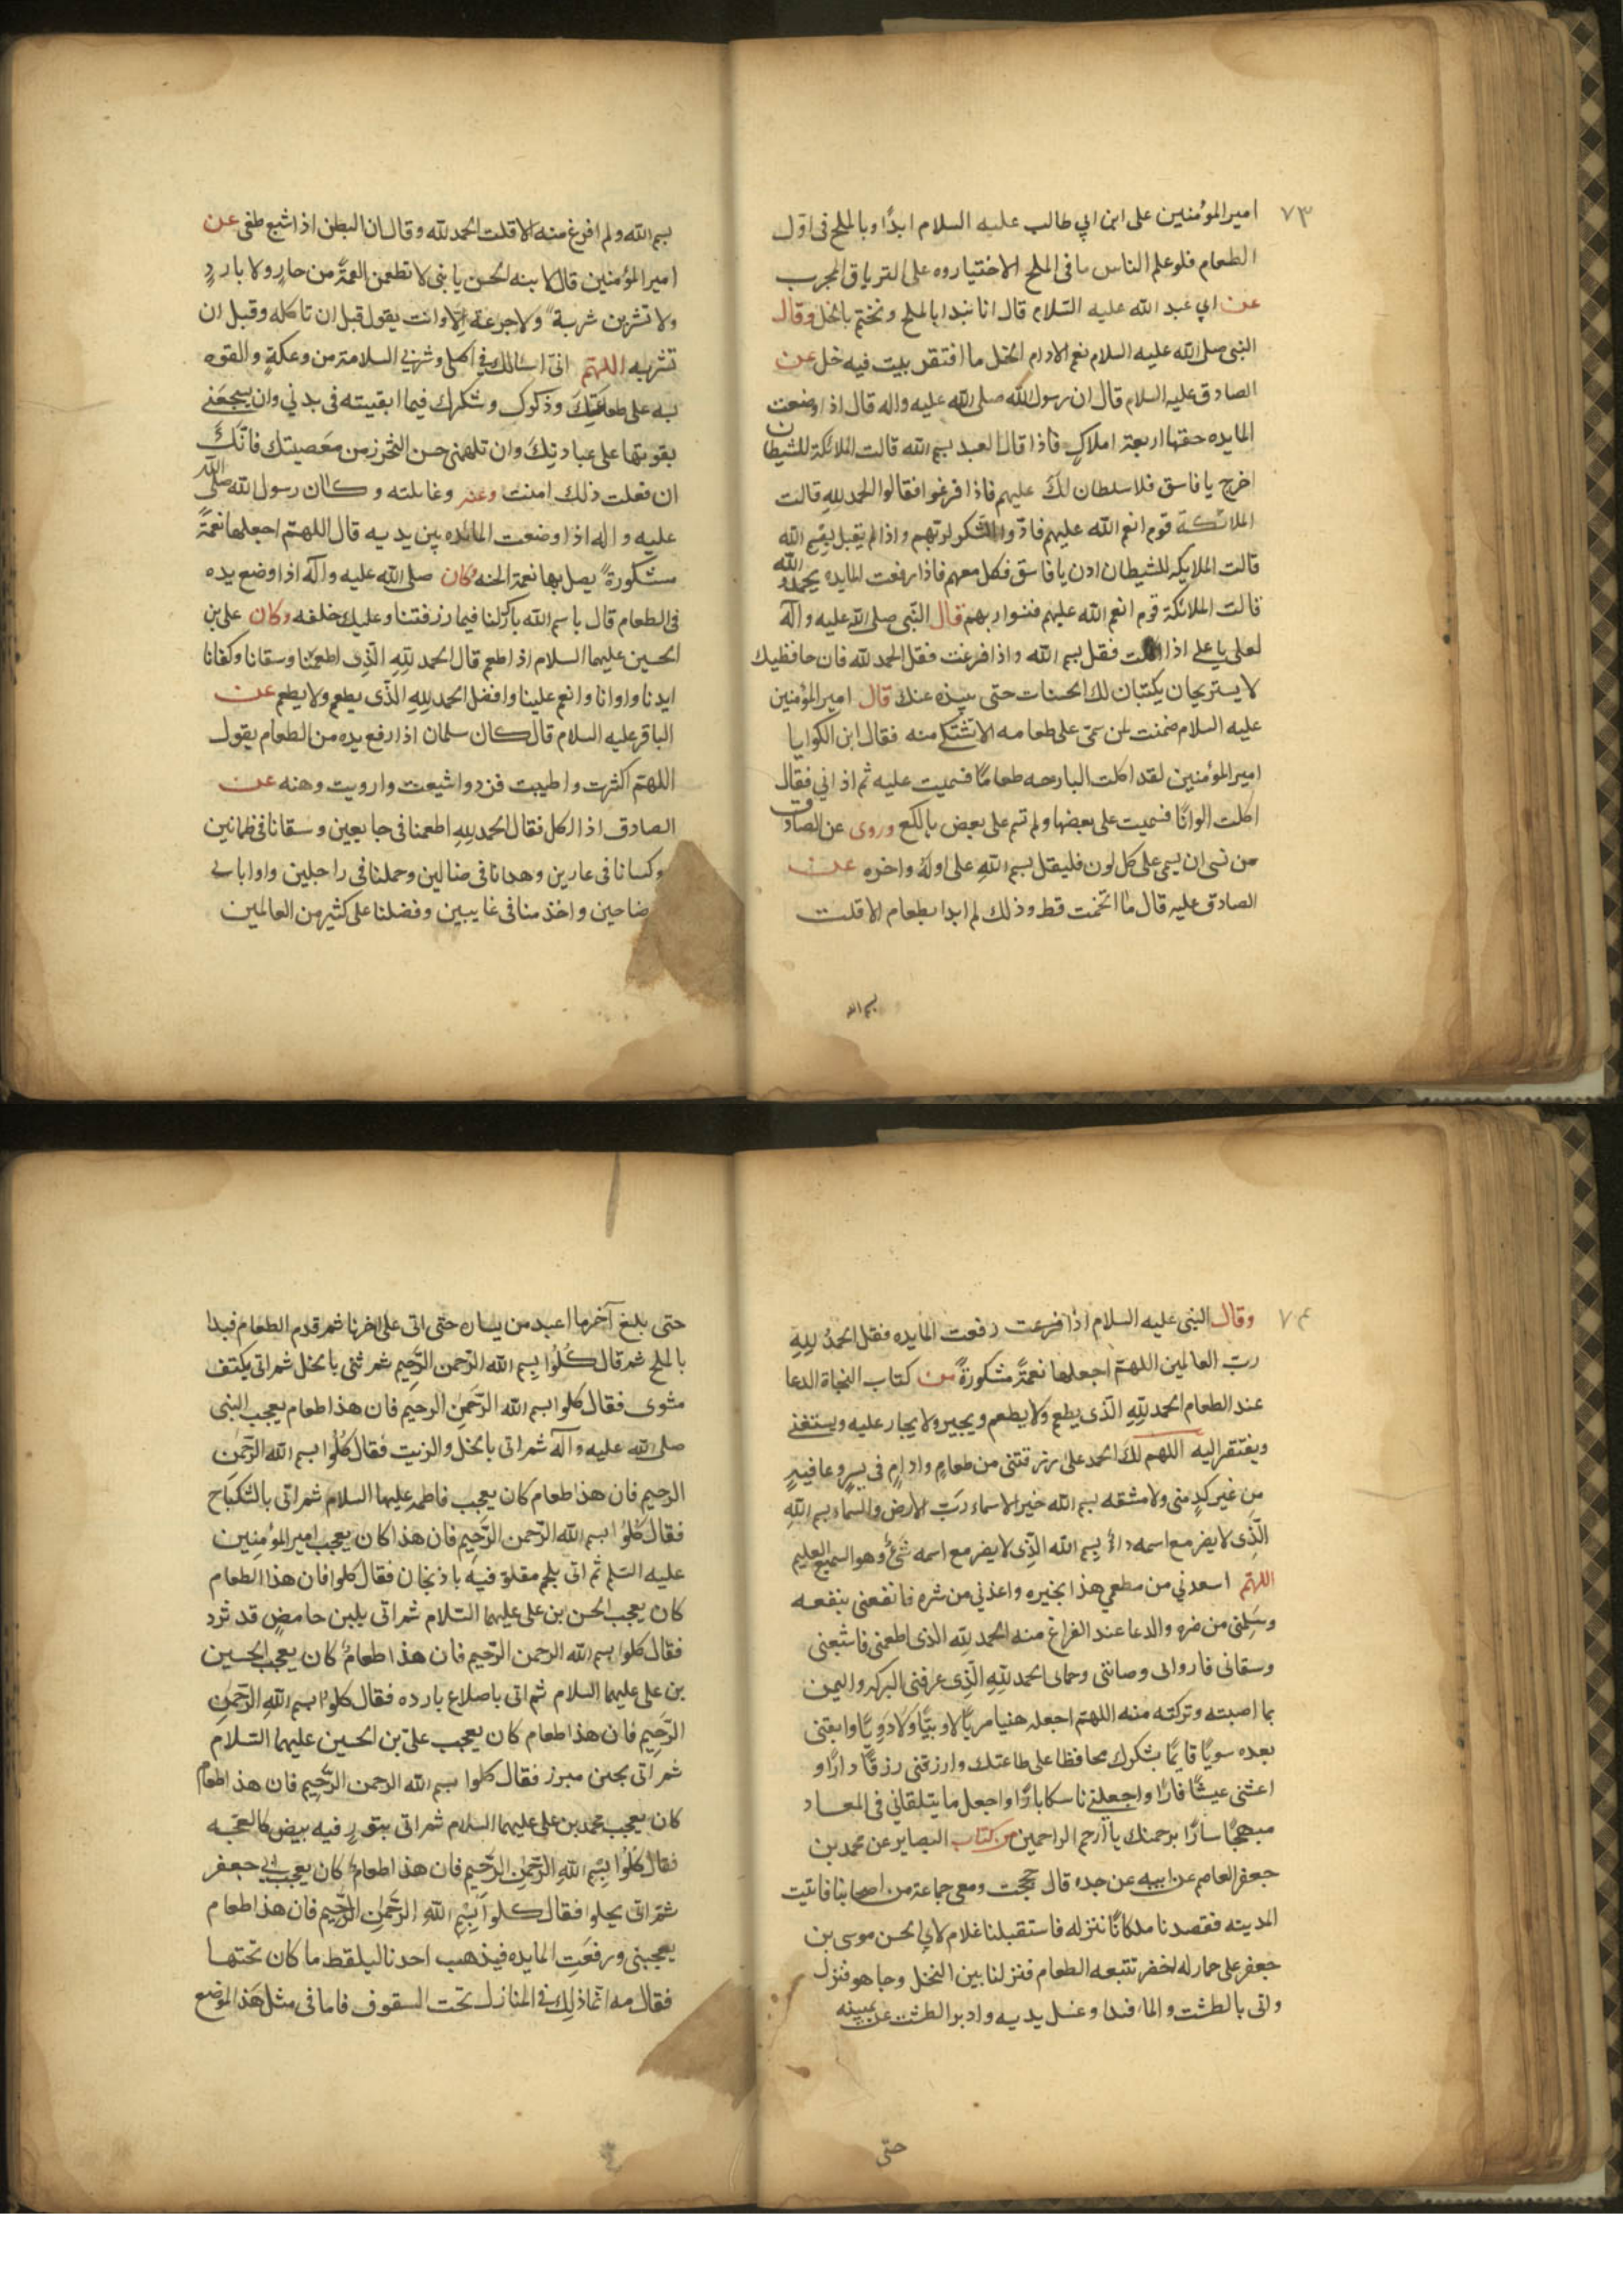 ٧٣
امير المؤمنين على ابن ابي طالب عليه السلام ابدًا وبالملح فى اوّل
الطعام فلو علم الناس ما فى الملح لاختياروه على الترياق المجرب
عن ابي عبد الله عليه السّلام قال انا نبدا بالملح ونختم بالخل وقال
النبى صلى الله عليه السلام نعم الادام الخل ما افتقر بيت فيه خل عن
الصادق عليه السلام قال ان رسول الله صلى الله عليه واله قال اذا وضعت
المايده حفتها اربعة املاكٍ فاذا قال العبد بسم الله قالت الملائكة للشيطان
اخرج يا فاسق فلا سلطان لك عليهم فاذا فرغوا فقالوا الحمد لله قالت
الملائكة قوم انعم الله عليهم فادّوا الشكر لربهم واذا لم يقبل بسم الله
قالت الملايكه للشيطان ادن يا فاسق فكل معهم فاذا رفعت المايده
قالت الملائكة قوم انعم الله عليهم فنسوا ربهم قال النّبى صلى الله عليه وآله
لعلى يا على اذا اكلت فقل بسم الله واذا فرغت فقل الحمد لله فان حافظيك
لا يستريحان يكتبان لك الحسنات حتى ينبذه عنك قال امير المؤمنين
عليه السلام ضمنت لمن سمّى على طعامه الا تشتكى منه فقال ابن الكوا يا
امير المؤمنين لقد اكلت البارحه طعامًا فسميت عليه ثم اذانى فقال
اكلت الوانًا فسميت على بعضها ولم تسم على بعض يا لكع وروى عن الصادق
من نسى ان يسمى على كل لون فليقل بسم الله على اوله واخره عن
الصادق عليه قال ما اتخمت قط وذلك لم ابدا بطعام الا قلت
بسم الله
بسم الله ولم افرغ منه الا قلت الحمد لله وقال ان البطن اذا شبع طغى عن
امير المؤمنين قال لابنه الحسن يا بنى لا تطعمن لقمةً من حارٍ ولا باردٍ
ولا تشربن شربة ولا جرعة الّا وانت يقول قبل ان تاكله وقبل ان
تشربه اللهمّ انى اسالك فى اكلى وشربى السلامة من وعكةٍ والقوه
به على طاعتك وذكرك وشكرك فيما ابقيته فى بدني وان يسجعنى
بقوتها على عبادتك وان تلهمنى حسن التحرز من معصيتك فانّك
ان فعلت ذلك امنت وعثه وغايلته وكان رسول الله صلى الله
عليه واله اذا وضعت المائده بين يديه قال اللهمّ اجعلها نعمةً
مشكورة يصل بها نعمة الجنه وكان صلى الله عليه وآله اذا وضع يده
فى الطعام قال باسم الله بارك لنا فيما رزقتنا وعليك خلفه وكان على بن
الحسين عليهما السلام اذا طعم قال الحمد لله الّذى اطعمنا وسقانا وكفانا
ايدنا واوانا وانعم علينا وافضل الحمد لله الذّى يطعم ولا يطعم عن
الباقر عليه السلام قال كان سلمان اذا رفع يده من الطعام يقول
اللهمّ اكثرت واطيبت فزد واشبعت وارويت وهنه عن
الصادق اذا اكل فقال الحمد لله اطعمنا فى جايعين وسقانا فى ظمانين
وكسانا فى عارين وهدانا فى ضالين وحملنا فى راجلين واوانا فى
ضاحين واخدمنا فى غايبين وفضلنا على كثير من العالمين
٧٤
وقال النبى عليه السلام اذا فرغت رفعت المايده فقل الحمدُ للهِ
ربّ العالمين اللهمّ اجعلها نعمةً مشكورةً من كتاب النجاة الدعا
عند الطعام الحمد للهِ الّذى يطعم ولا يطعم ويجير ولا يجار عليه ويستغنى
ويفتقر اليه اللهم لك الحمد على رزقتنى من طعامٍ وادامٍ فى يسرٍ وعافيةٍ
من غير كدٍ منى ولا مشقه بسم الله خير الاسماء ربّ الارض والسماء بسم الله
الّذى لا يضر مع اسمه داءٌ بسم الله الّذى لا يضر مع اسمه شئٌ وهو السميع العليم
اللهمّ اسعدنى من مطعمي هذا بخيره واعذني من شره فانفعنى بنفعه
وسلّمنى من ضره والدعا عند الفراغ منه الحمد لله الذى اطعمنى فاشبعنى
وسقانى فاروانى وصاننى وحمانى الحمد لله الّذى عرفنى البركه واليمن
بما اصبته وتركته منه اللهم اجعله هنيا مريًا لا وبيًّا ولا دويًّا وابقنى
بعده سويًا قايمًا بشكرك محافظا على طاعتك وارزقنى رزقًا دارًا و
اعشنى عيشًا قارًا واجعلنى ناسكا بارًا واجعل ما يتلقاني فى المعاد
مبهجًا سارًا برحمتك يا ارحم الراحمين من كتاب البصاير عن محمد بن
جعفر العاصم عن ابيه عن جده قال حججت ومعى جماعة من اصحابنا فاتيت
المدينه فقصدنا مكانًا ننزله فاستقبلنا غلام لابي الحسن موسى بن
جعفر على حمار له اخضر تتبعه الطعام فنزلنا بين النخل وجا هو فنزل
واتى بالطشت والما فبدا وغسل يديه وادير الطشت عن يمينه
حتى
حتى بلغ آخرنا اعيد من يساره حتى اتى على اخرنا ثم قدم الطعام فبدا
بالملح ثم قال كُلُوا بِسم الله الرّحمن الرّحيم ثم ثنى بالخل ثم اتى بكتف
مشوى فقال كلوا بسم الله الرّحمن الرحيم فان هذا طعام يعجب النبى
صلى الله عليه وآله ثم اتى بالخل والزيت فقال كُلُوا بسم الله الرّحمن
الرحيم فان هذا طعام كان يعجب فاطمه عليها السلام ثم اتى بالسكباج
فقال كُلُوا بسم الله الرّحمن الرّحيم فان هذا كان يعجب امير المؤمنين
عليه السّلم ثم اتى بلحم مقلوٍ فيه باذنجان فقال كلوا فان هذا الطعام
كان يعجب الحسن بن على عليهما السّلام ثم اتى بلبن حامضٍ قد ثرد
فقال كلوا بسم الله الرحمن الرّحيم فان هذا طعامٌ كان يعجب الحسين
بن على عليهما السلام ثم اتى باضلاع بارده فقال كلوا بسم الله الرّحمن
الرّحيم فان هذا طعام كان يعجب على بن الحسين عليهما السّلام
ثم اتى بجبن مبرز فقال كلوا بسم الله الرحمن الرّحيم فان هذا طعام
كان يعجب محمد بن على عليهما السلام ثم اتى بتورٍ فيه بيض كالعجّه
فقال كُلُوا بِسْم اللهِ الرّحمن الرّحيم فان هذا طعامٌ كان يعجب ابي جعفر
ثم اتى بحلوا فقال كلوا بِسْمِ اللهِ الرّحمن الرّحيم فان هذا طعام
يعجبنى ورفعَتِ المايده فيذهب احدنا ليلقط ما كان تحتها
فقال مه انّما ذلِك فى المنازل تحت السقوف فاما فى مثل هَذا الموضع